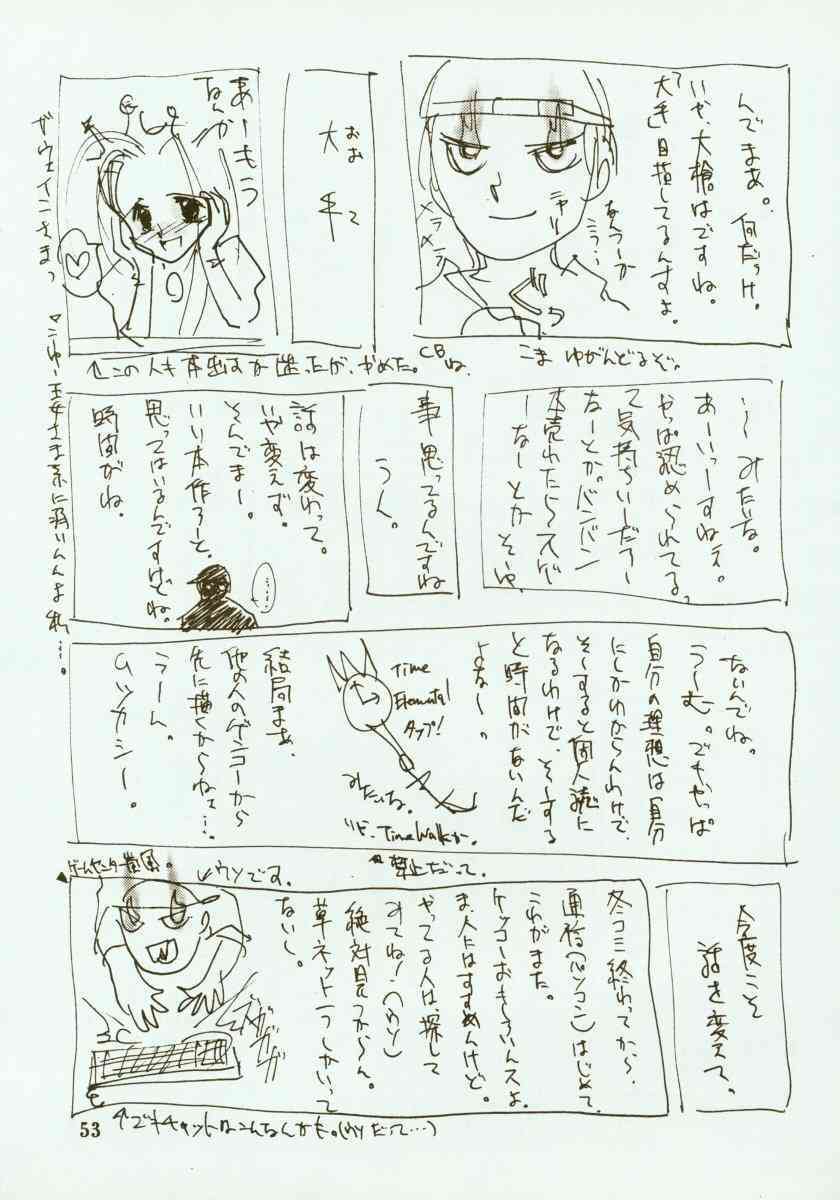 んでまあ。何だっけ。
いや、大槍はですね。
「大手」目指してるんすよ。
なんつーか
こう…
ニャリ
メラ
メラ
こま ゆがんどるぞ。
CBね。
おお て
大 手
あーもう
なんかー
ガウェインさまっ
↑この人も本出すか迷ったが、やめた。
～みたいな。
あーいっすねぇ。
やっぱ認められてる
て気持ちいーだろー
なーとか。バンバン
本売れたらスゲ
ーなーとかそーゆ
事思ってるんですね
うん。
話は変わって。
いや変えず。
そんでまー。
いい本作ろーと。
思ってはいるんですけどね。
時間がね。
ないんでね。
うーむ。でもやっぱ
自分の理想は自分
にしかわからんわけで、
そーすると個人誌に
なるわけで、そーする
と時間がないんだ
よなー。
Time
Elemental
タップ!
みたいな。
Time Walkか。
禁止だって。
結局まぁ、
他の人のゲンコーから
先に描くからねぇ…。
うーん。
ムツカシー。
今度こそ
話を変えて。
冬コミ終わってから、
通信(パソコン)はじめて、
これがまた。
ケッコーおもしろいんスよ。
ま、人にはすすめんけど。
やってる人は探して
みてね!(ウソ)
絶対見つからん。
草ネット一つしかいって
ないし。
ゲームセンター嵐風。
↙ウソです。
ガガガガ
↑でもチャットはこんなんかも。(ウソだって…)
53